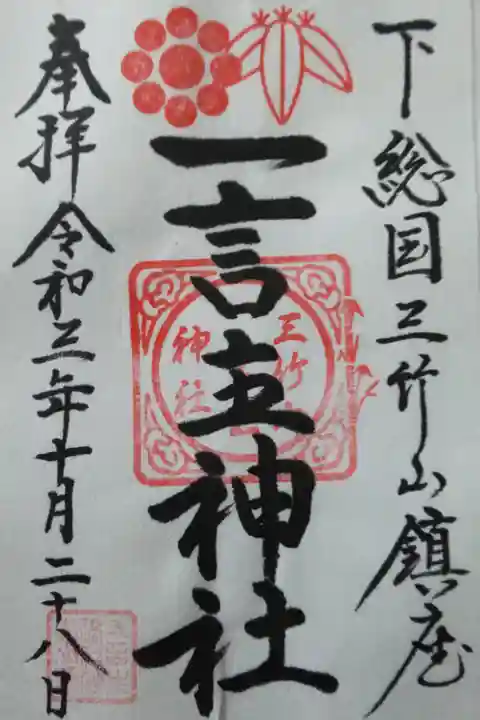 下総国三竹山鎮座
一言主神社
奉拝令和三年十月二十八日
三竹
神社